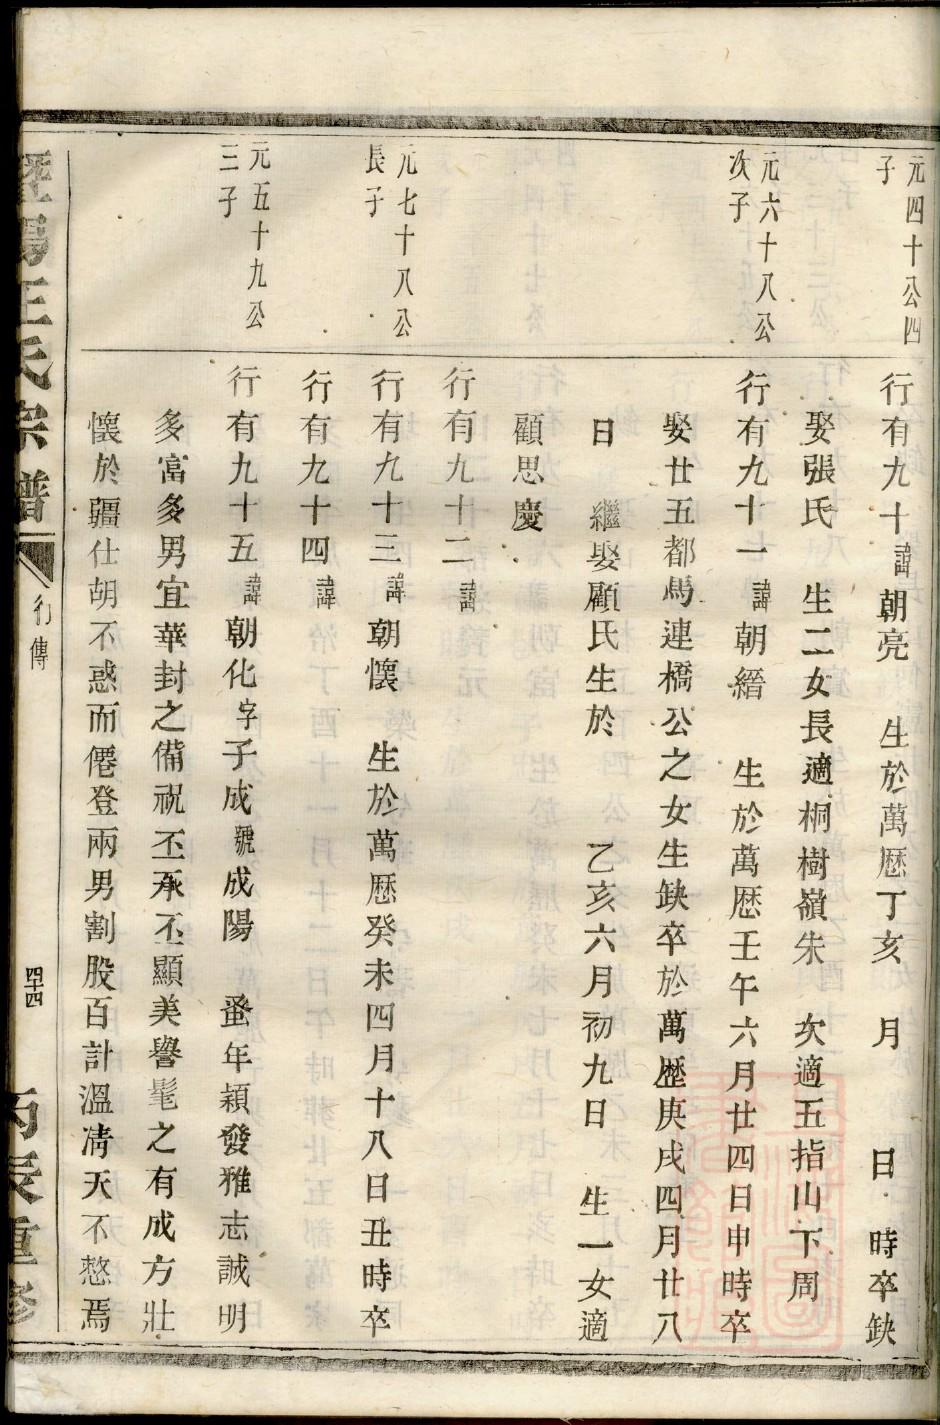 元四十公四
子
行有九十諱朝亮　生於萬歷丁亥　月　日　時卒缺
娶張氏　生二女長適桐樹嶺朱　次適五指山下周
元六十八公
次子
行有九十一諱朝縉　生於萬歷壬午六月廿四日申時卒
娶廿五都馬連橋公之女生缺卒於萬歷庚戌四月廿八
日　繼娶顧氏生於　乙亥六月初九日　生一女適
顧思慶
行有九十二諱
元七十八公
長子
行有九十三諱朝懷　生於萬歷癸未四月十八日丑時卒
行有九十四諱
元五十九公
三子
行有九十五諱朝化字子成號成陽　蚤年穎發雅志誠明
多富多男宜華封之備祝丕承丕顯美譽髦之有成方壯
懷於疆仕胡不惑而僊登兩男割股百計溫凊天不憗焉
暨陽王氏宗譜
行傳
四十四
丙辰重修